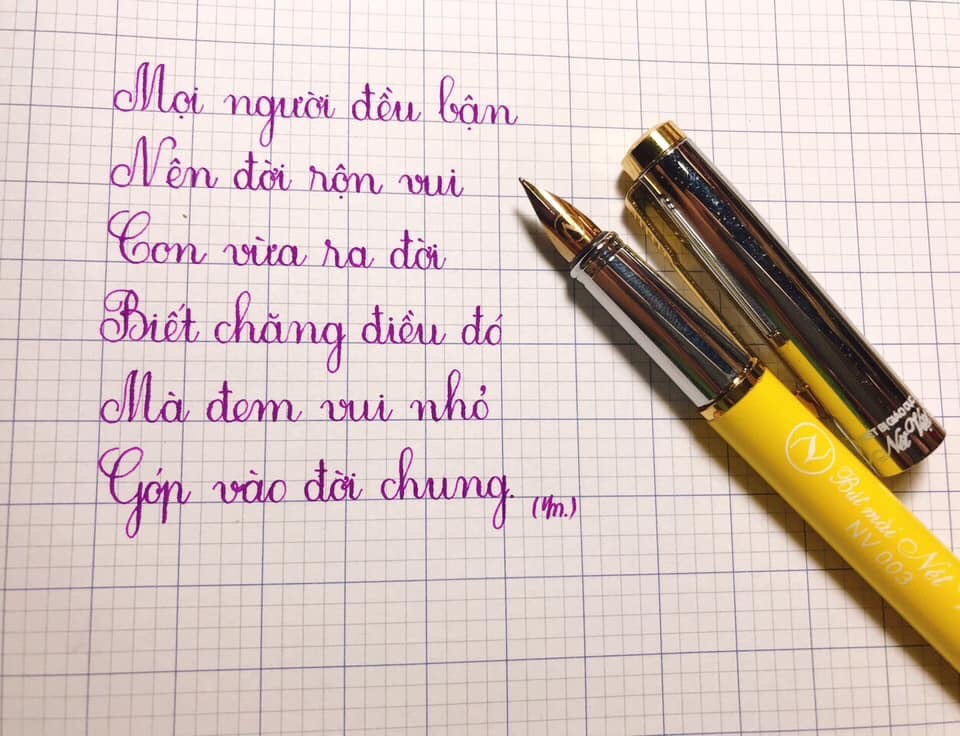 Mọi người đều bận
Nên đời rộn vui
Con vừa ra đời
Biết chăng điều đó
Mà đem vui nhỏ
Góp vào đời chung.
ẾT BỊ GIÁO DỤC
Bút mài Nét
NV 003